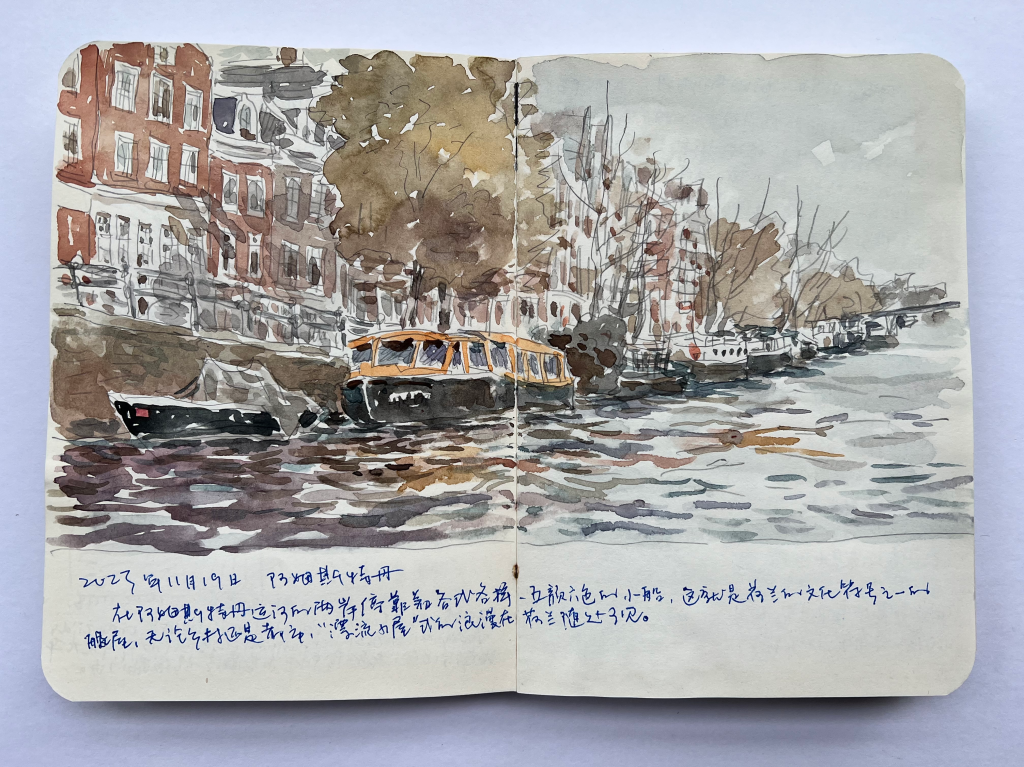 2023年11月19日 阿姆斯特丹
在阿姆斯特丹运河的两岸停靠着各式各样、五颜六色的小船，这就是荷兰的文化符号之一的
船屋，无论乡村还是都市，“漂流的屋”式的浪漫在荷兰随处可见。